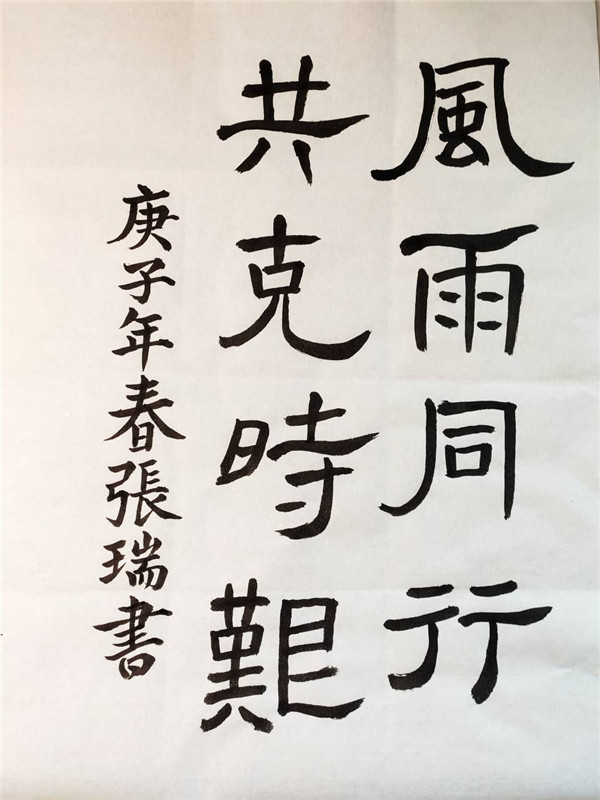 風雨同行
共克時艱
庚子年春張瑞書